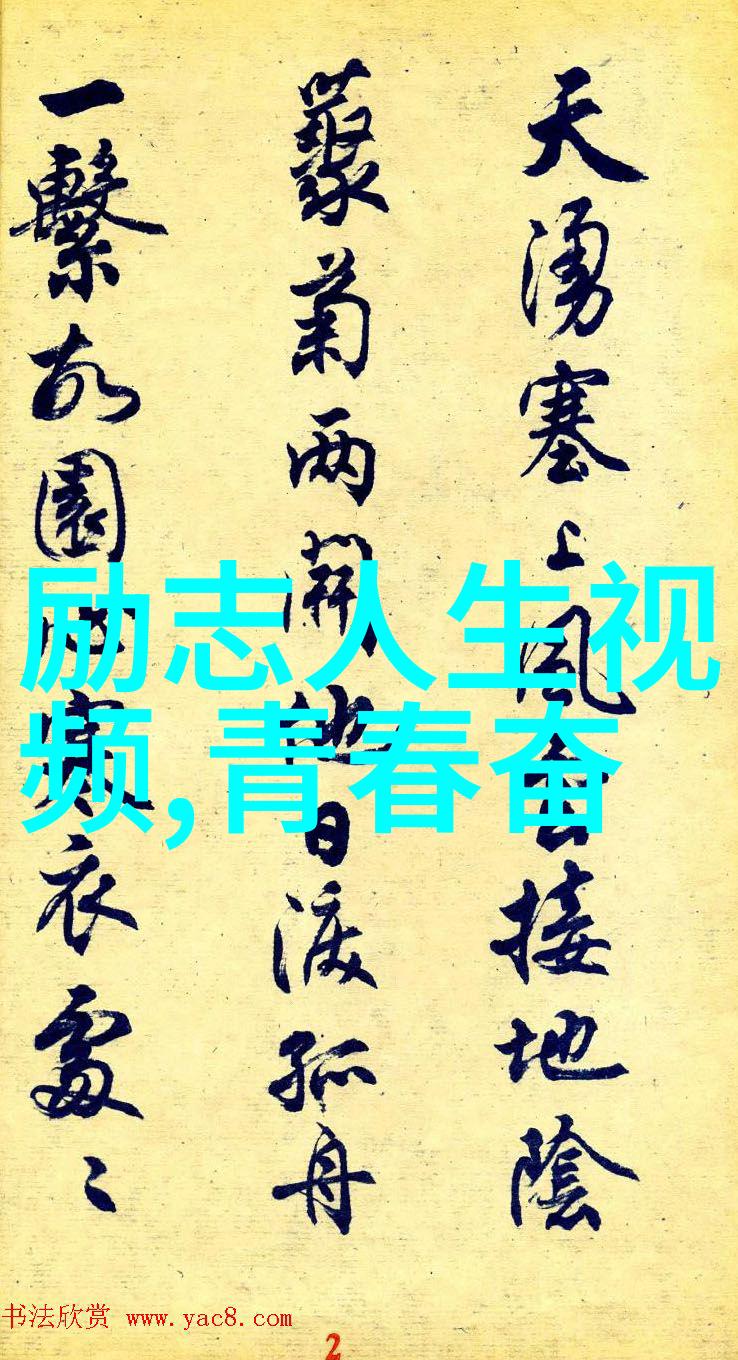 天湧塞上風雲接地陰
藂菊两開他日淚孤舟
一繫故園心寒衣處〻
励志人生视
频,青春奋
书法欣赏 www.yac8.com
2